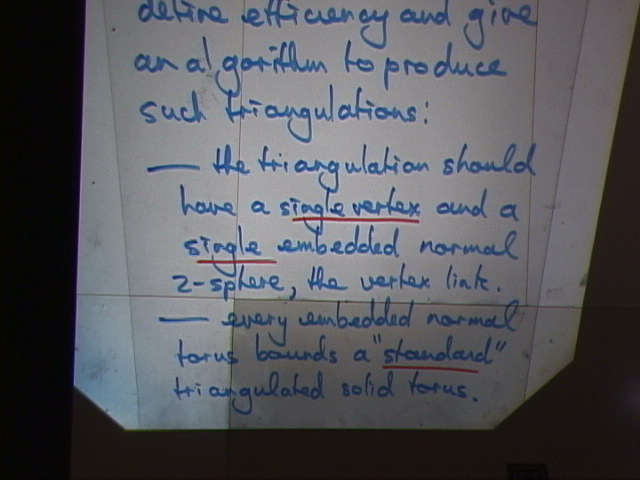 define efficiency and give
an algorithm to produce
such triangulations:
— the triangulation should
have a single vertex and a
single embedded normal
2-sphere, the vertex link.
— every embedded normal
torus bounds a "standard"
triangulated solid torus.